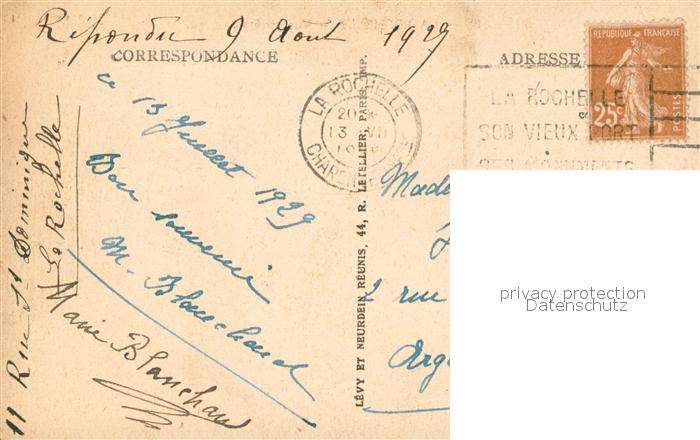 Répondu 9 Août 1929
CORRESPONDANCE
ADRESSE
ce 13 Juillet 1929
Bon souvenir
M. Blanchaud
11 Rue St Dominique
La Rochelle
Marie Blanchaud
LÉVY ET NEURDEIN RÉUNIS, 44, R. LETELLIER, PARIS, IMP.
LA ROCHELLE
20
13 VII
CHAR
LA ROCHELLE
SON VIEUX PORT
SES MONUMENTS
REPUBLIQUE FRANÇAISE
25c
POSTES
Made
2 rue
Arg
privacy protection
Datenschutz